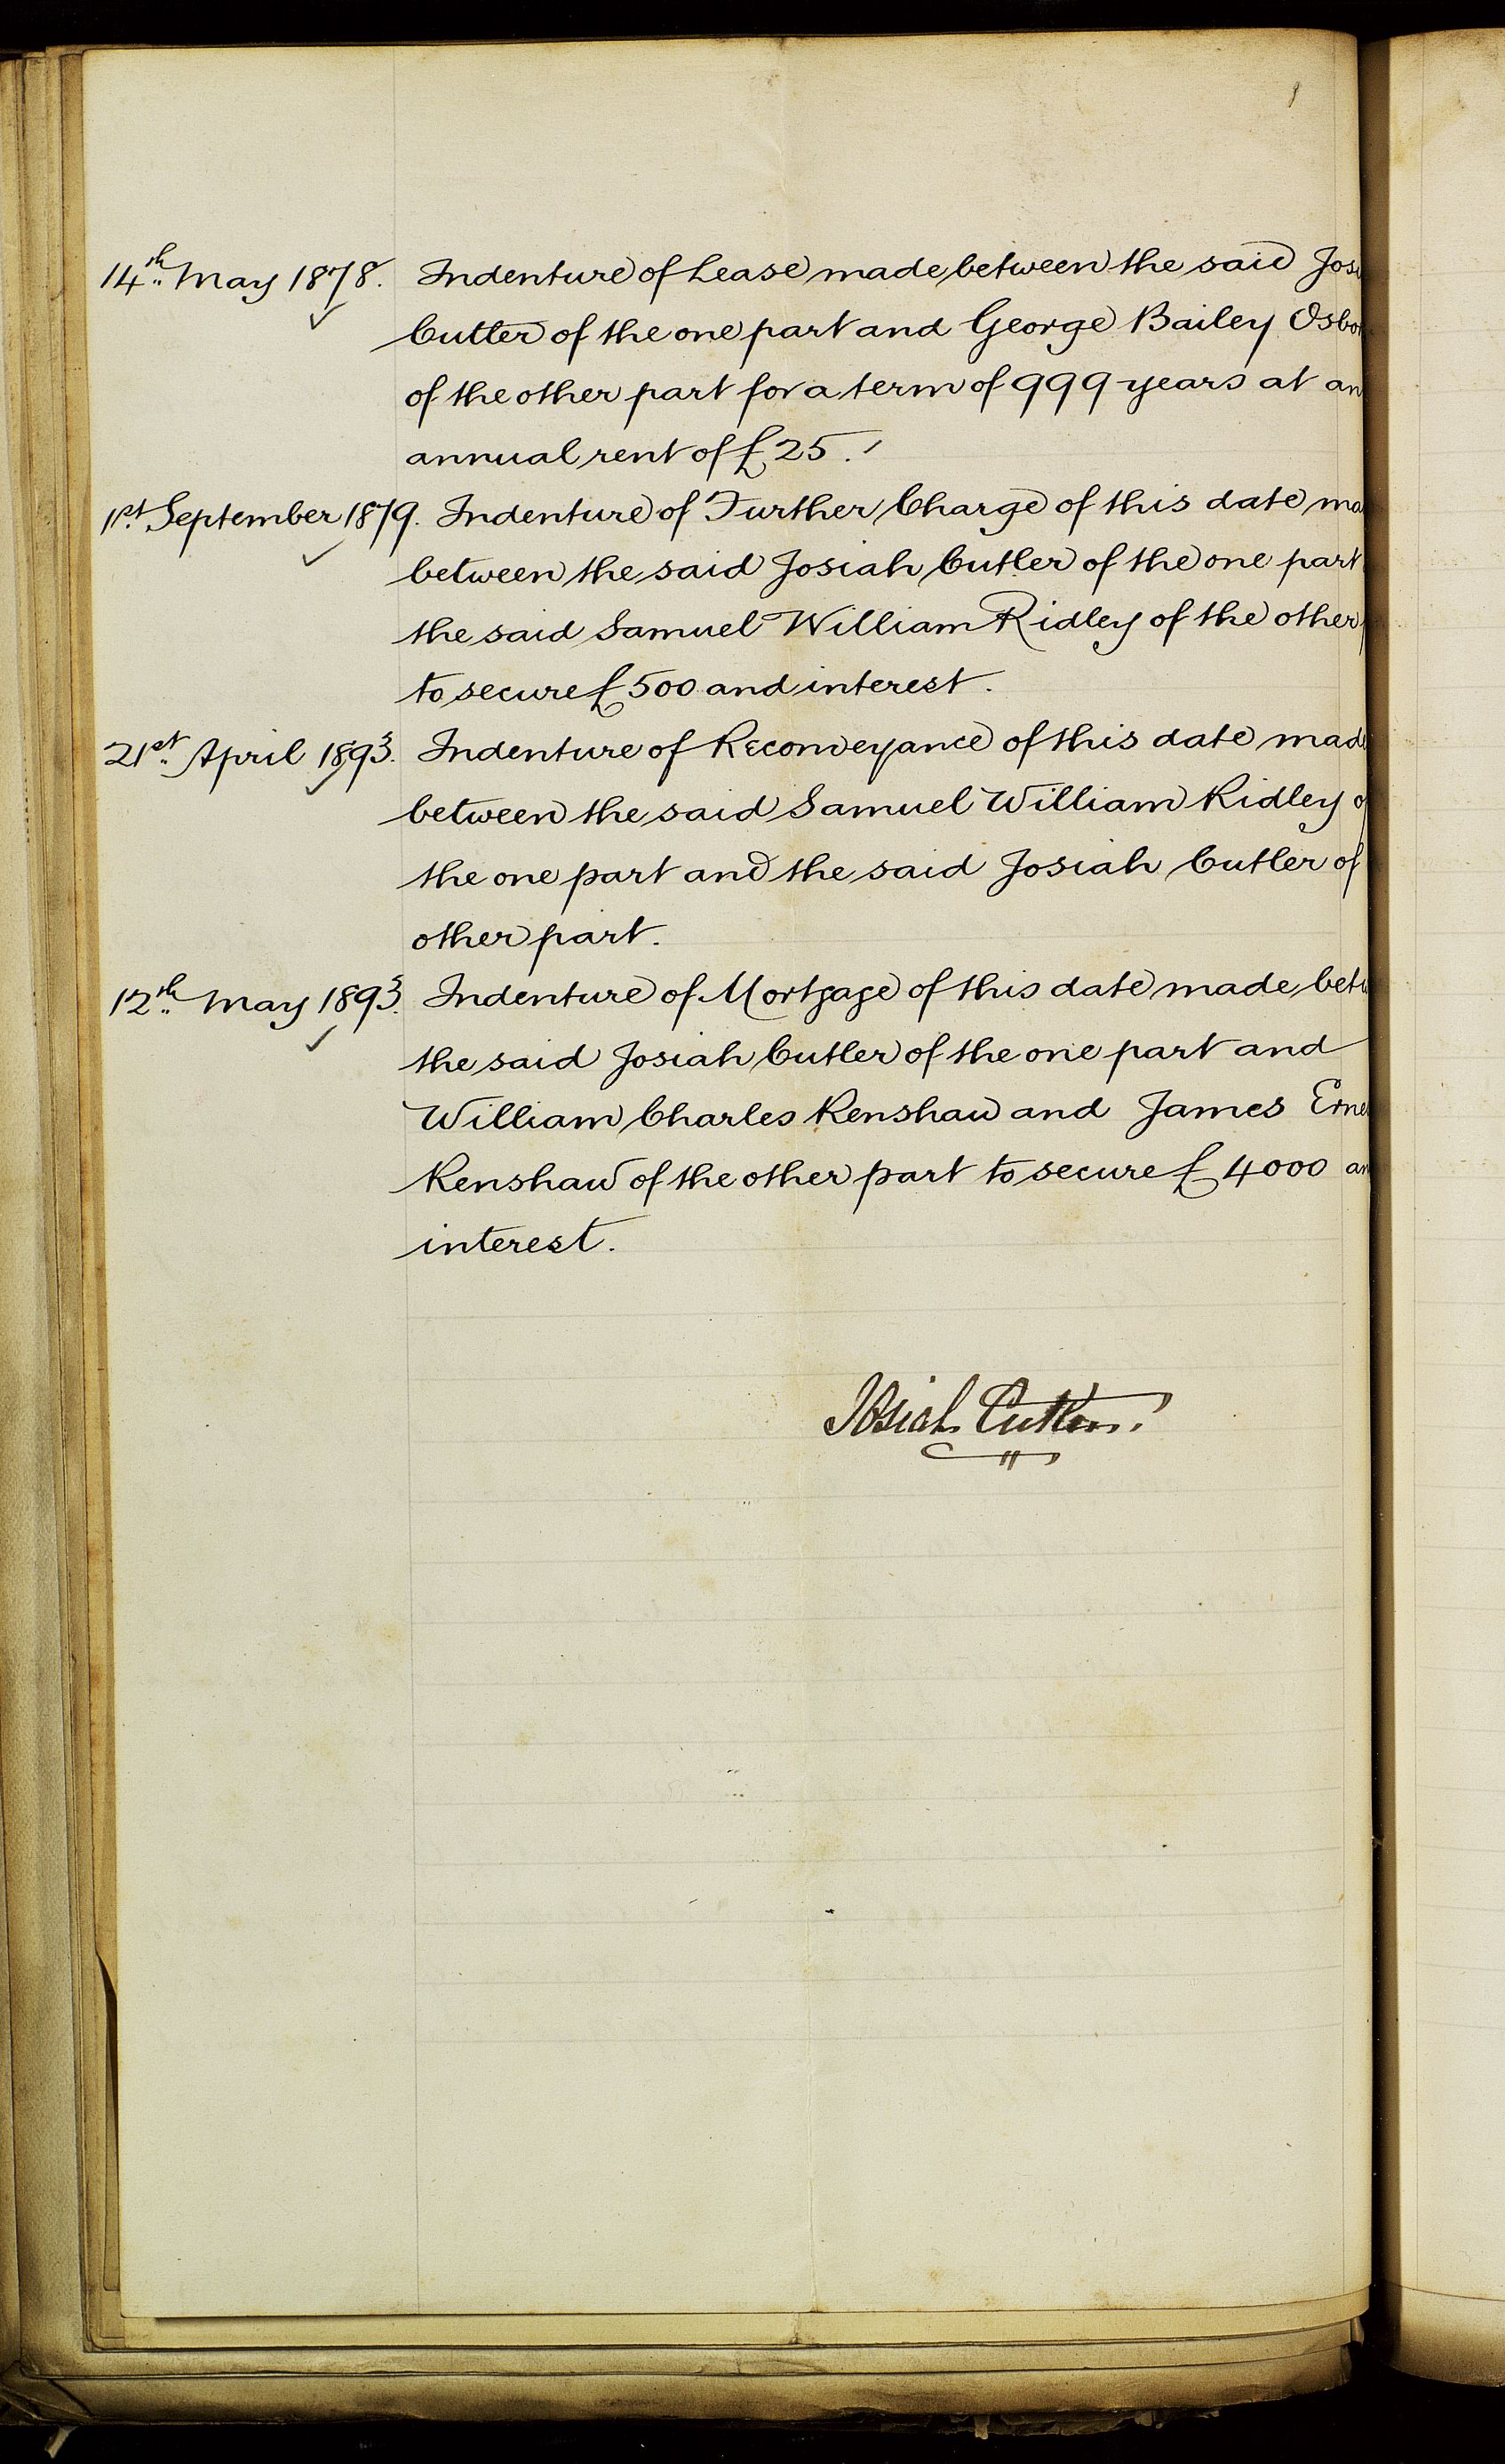 14th May 1878. Indenture of Lease made between the said Josi
Cutler of the one part and George Bailey Osbor
of the other part for a term of 999 years at an
annual rent of £25.
1st September 1879. Indenture of Further Charge of this date ma
between the said Josiah Cutler of the one part
the said Samuel William Ridley of the other
to secure £500 and interest.
21st April 1893. Indenture of Reconveyance of this date made
between the said Samuel William Ridley of
the one part and the said Josiah Cutler of
other part.
12th May 1893. Indenture of Mortgage of this date made betw
the said Josiah Cutler of the one part and
William Charles Renshaw and James Erne
Renshaw of the other part to secure £4000 an
interest.
Josiah Cutler.